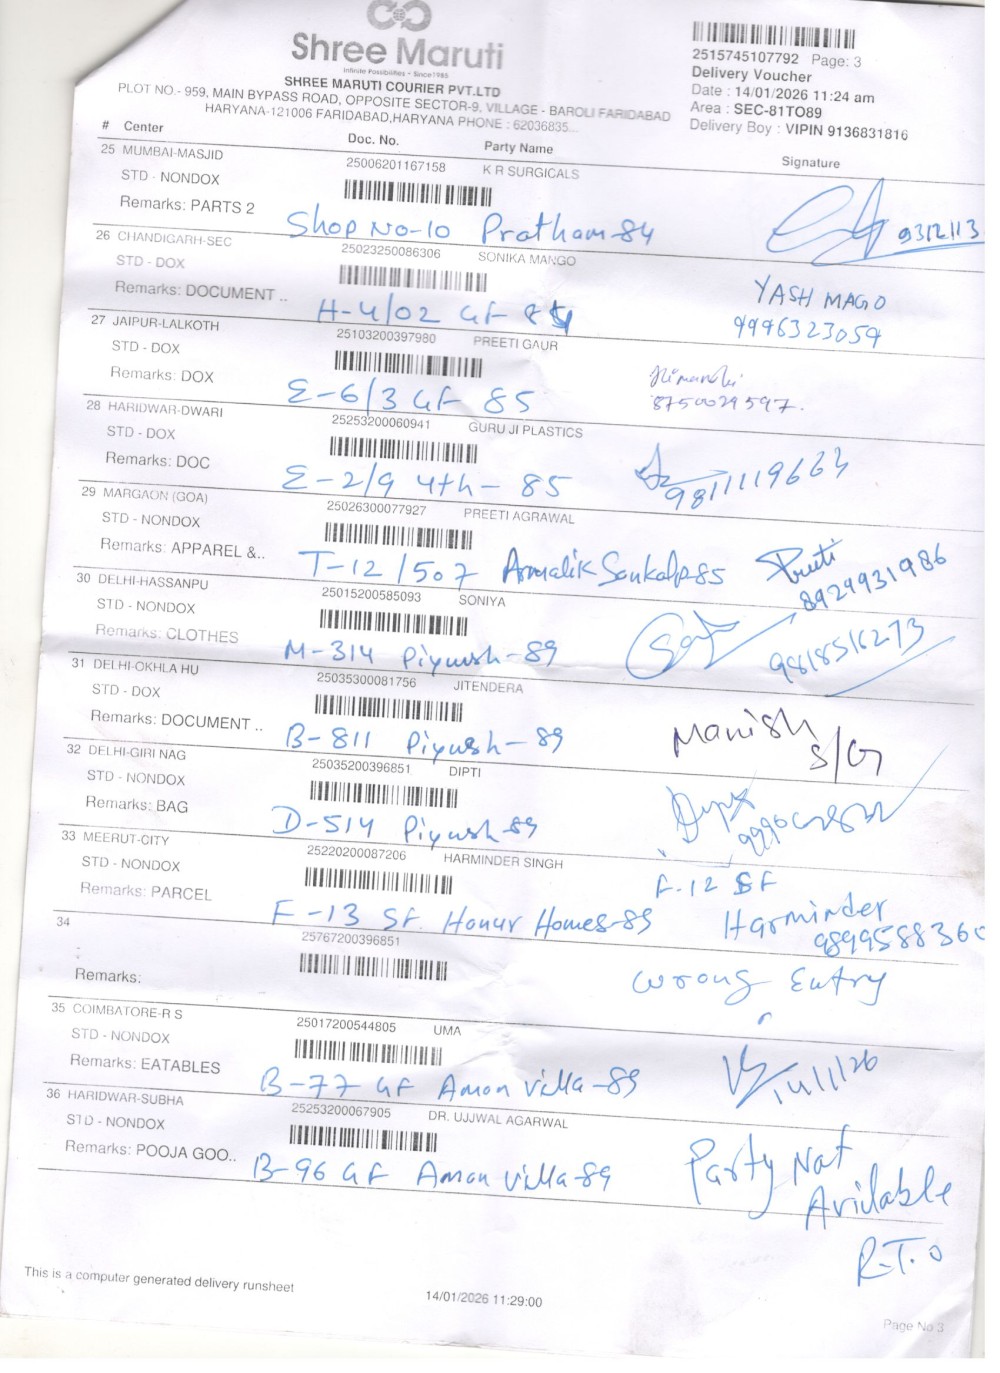 Shree Maruti
Infinite Possibilities - Since 1985
SHREE MARUTI COURIER PVT.LTD
PLOT NO.- 959, MAIN BYPASS ROAD, OPPOSITE SECTOR-9, VILLAGE - BAROLI FARIDABAD
HARYANA-121006 FARIDABAD,HARYANA PHONE : 62036835...
2515745107792 Page: 3
Delivery Voucher
Date : 14/01/2026 11:24 am
Area : SEC-81TO89
Delivery Boy : VIPIN 9136831816
# Center Doc. No. Party Name Signature
25 MUMBAI-MASJID 25006201167158 K R SURGICALS
STD - NONDOX
Remarks: PARTS 2
Shop No-10 Pratham-84
9312113
26 CHANDIGARH-SEC 25023250086306 SONIKA MANGO
STD - DOX
Remarks: DOCUMENT ..
H-4/02 GF
YASH MAGO
9996323059
27 JAIPUR-LALKOTH 25103200397980 PREETI GAUR
STD - DOX
Remarks: DOX
E-6/3 GF 85
Himanshi
8750029597.
28 HARIDWAR-DWARI 25253200060941 GURU JI PLASTICS
STD - DOX
Remarks: DOC
E-2/9 4th- 85
9811119663
29 MARGAON (GOA) 25026300077927 PREETI AGRAWAL
STD - NONDOX
Remarks: APPAREL &..
T-12/507 Armalik Sankalp 85
Preeti
8929931986
30 DELHI-HASSANPU 25015200585093 SONIYA
STD - NONDOX
Remarks: CLOTHES
M-314 Piyush-89
9818516273
31 DELHI-OKHLA HU 25035300081756 JITENDERA
STD - DOX
Remarks: DOCUMENT ..
B-811 Piyush-89
Manish
S/G
32 DELHI-GIRI NAG 25035200396851 DIPTI
STD - NONDOX
Remarks: BAG
D-514 Piyush-89
33 MEERUT-CITY 25220200087206 HARMINDER SINGH
STD - NONDOX
Remarks: PARCEL
F-13 SF. Honur Homes-89
F-12 SF
Harminder
989958836
34 25767200396851
Remarks:
Wrong Entry
35 COIMBATORE-R S 25017200544805 UMA
STD - NONDOX
Remarks: EATABLES
B-77 GF Aman Villa-89
14/1/26
36 HARIDWAR-SUBHA 25253200067905 DR. UJJWAL AGARWAL
STD - NONDOX
Remarks: POOJA GOO..
B-96 GF Aman Villa-89
Party Not
Avilable
R.T.O
This is a computer generated delivery runsheet
14/01/2026 11:29:00
Page No 3